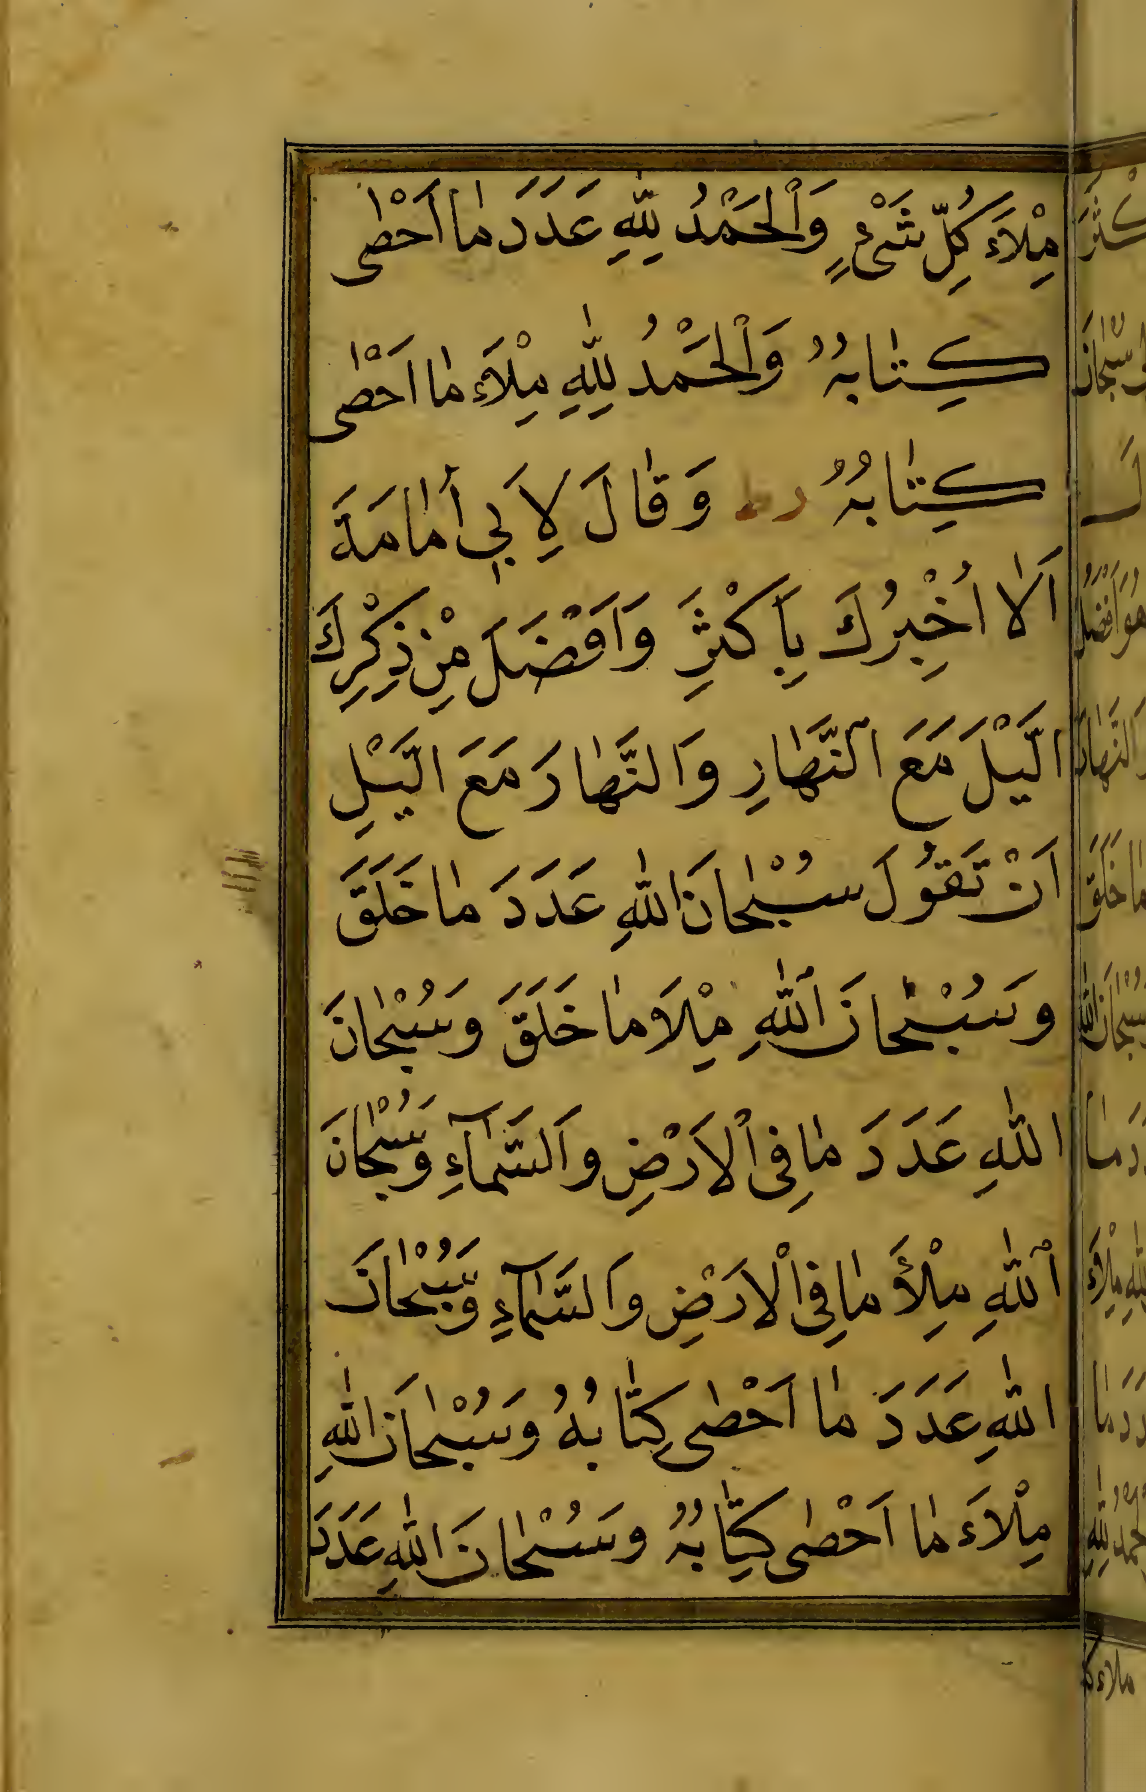 مِلْاَءَ كُلِّ شَیْءٍ وَالْحَمْدُ لِلّٰهِ عَدَدَ مٰا اَحْصٰى
كِتٰابُهُ وَالْحَمْدُ لِلّٰهِ مِلْاَءَ مٰا اَحْصٰى
كِتٰابُهُ رط وَقٰالَ لِاَبٖي اُمٰامَةَ
اَلٰا اُخْبِرُكَ بِاَكْثَرِ وَاَفْضَلَ مِنْ ذِكْرِكَ
الَّيْلَ مَعَ النَّهٰارِ وَالنَّهٰارَ مَعَ الَّيْلِ
اَنْ تَقُولَ سُبْحٰانَ اللّٰهِ عَدَدَ مٰا خَلَقَ
وَسُبْحٰانَ اللّٰهِ مِلْاَ مٰا خَلَقَ وَسُبْحٰانَ
اللّٰهِ عَدَدَ مٰا فِى الْاَرْضِ وَالسَّمٰآءِ وَسُبْحٰانَ
اللّٰهِ مِلْأَ مٰا فِى الْاَرْضِ وَالسَّمٰآءِ وَسُبْحٰانَ
اللّٰهِ عَدَدَ مٰا اَحْصٰى كِتٰابُهُ وَسُبْحٰانَ اللّٰهِ
مِلْاَءَ مٰا اَحْصٰى كِتٰابُهُ وَسُبْحٰانَ اللّٰهِ عَدَدَ